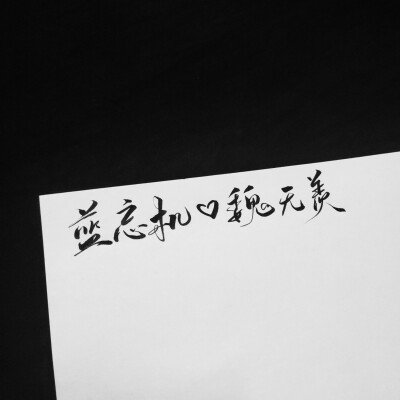 蓝忘机♡魏无羡